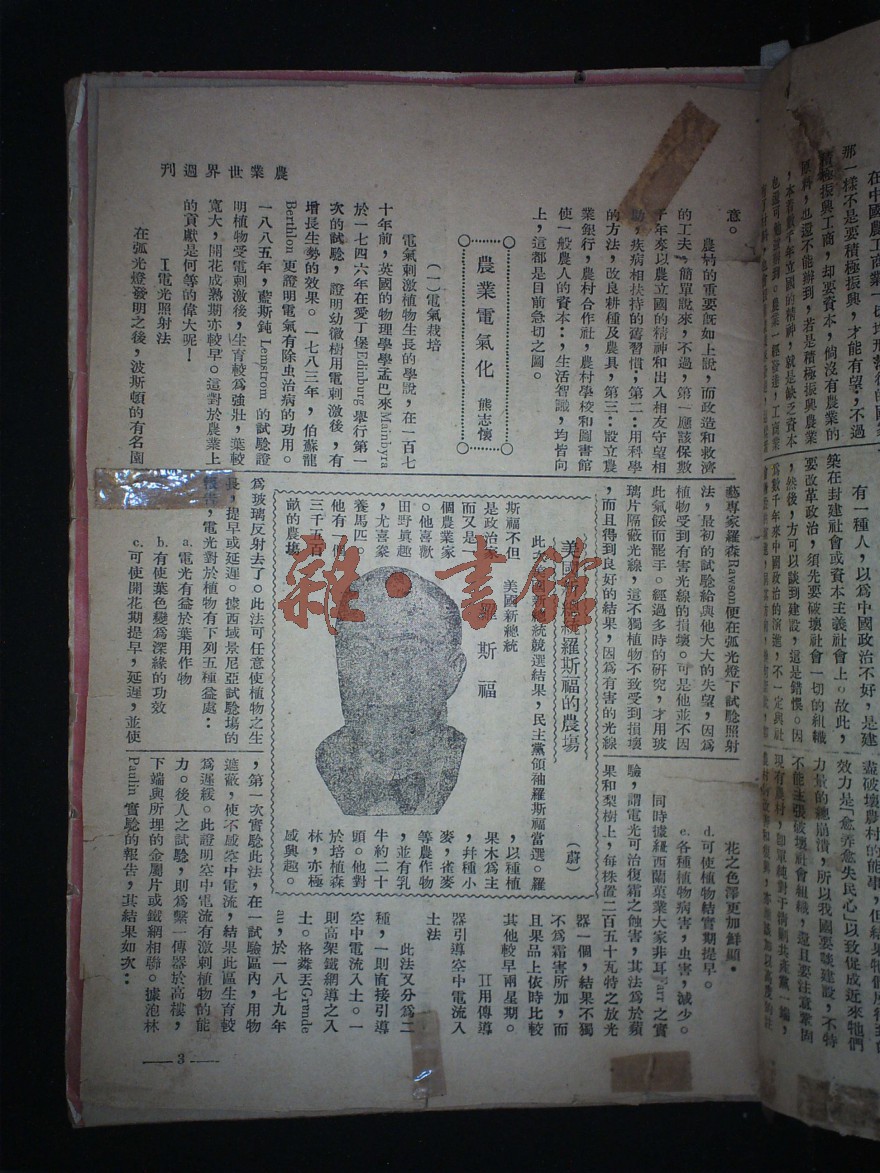 在中國農工商業一切均形落後的國
那一樣不是要積極振興，才能有望；不過
積極振興工商，却要資本，倘沒有農業的
原料，也還不能辦到，若是積極振興農業
，本着數千年立國的精神，就是缺乏資本
有一種人，以為中國政治不好，是建
築在封建社會或資本主義社會上。故此，
要改革政治，須先要破壞社會一切的組織
，然後，方可以談到建設，這是錯悞。因
為數千年來中國政治的演進，不一定與社
盡破壞農村的能事，但結果
效力是「愈弄愈失民心」以致從成近來牠們
力量的總崩潰，所以我國要談建設，不特
不能主張破壞社會組織，還且要注意鞏固
現有農村，即單純對于清剿共產黨一端，
農業世界週刊
意。
農村的重要既如上說，而改造和救濟
的工夫，簡單說來，不過，第一應該保數
千年來以農立國的精神和出入相友守望相
助，疾病相扶持的舊習慣；第二：用科學
的方法，改良耕種及農具，第三：設立農
業銀行，農村合作社，農村學校和圖書館
使一般農人的資本：，生活智識，均皆向
上，這都是目前急切之圖。
農業電氣化 熊志懷
（一）電氣栽培
電氣刺激植物生長的學說，在一百七
十年前，英國的物理學學孟巴來Mainbyra
於一七四六年在愛丁堡Edinburg舉行第一
次的試驗，證明幼徽樹用電刺激後，有
增長生勢的效果。一七八三年，伯蘇龍
Berthlon更證明電氣有除虫治病的功用。
一八八五年，藍斯鈍Lemstrom的試驗證
明植物受電刺激後，生育較為強壯，葉較
寬大，開花成熟期亦較早。這對於農業上
的貢獻是何等的偉大呢！
I電光照射法
在弧光燈發明之後，波斯頓的有名園
藝專家羅森Rawson便在弧光燈下試驗照射
法，最初的試驗給與他大大的失望，因為
植物受到有害光線的損壞。可是他並不因
此氣餒而罷手。經過多時的研究，才用玻
璃片隔蔽光線，這不獨植物不致受到損壞
，而且得到良好的結果，因為有害的光線
為玻璃反射去了。此法可任意使植物之生
長，提早或延遲。據西域景尼亞試驗塲的
報告，電光對於植物有下列五種益處：
a.電光有益於葉用作物
b.有使葉色變為深綠的功效
c.可使開花期提早，延遲，並使
花之色澤更加鮮顯。
d.可使植物結實期提早。
e.各種植物病害，虫害，減少。
同時據紐西蘭菓業大家非耳Farr之實
驗，謂電光可治復霜之蝕害，其法為於蘋
果和梨樹上，每株置二百五十瓦特之放光
器一個，結果不獨
不為霜害所加，而
且果品上依時比較
其他較早兩星期。
II用傳導
器引導空中電流入
土法
此法又分為二
種，一則直接引導
空中電流入土。一
則高架鐵網導之入
土。格粦丟Grande
au，於一八七九年
，第一次實驗此法，在一試驗區內，用物
遮蔽，使不感空中電流，結果此區生育較
為遲緩。此證明空中電流有激刺植物的能
力。後人之試驗，則為繫一傳器於高樓，
下端與所埋的金屬片或鐵網相聯。據泡林
Paulin實驗的報告，其結果如次：
美國新總統羅斯福的農塲 （蔚）
此次美國新總統競選結果，民主黨領袖羅斯福當選。羅
斯福不但
是政治家
而又是一
個農業家
。他喜歡
田野眞趣
，尤喜豢
養馬匹。
他有一個
三千五百
畝的農塲
美國新總統
羅斯福
，以種植
果木為主
，幷種小
麥，雀麥
等農作物
，並有乳
牛約二十
頭。他對
於培植森
林，亦極
感興趣。
—3—
雜·書館